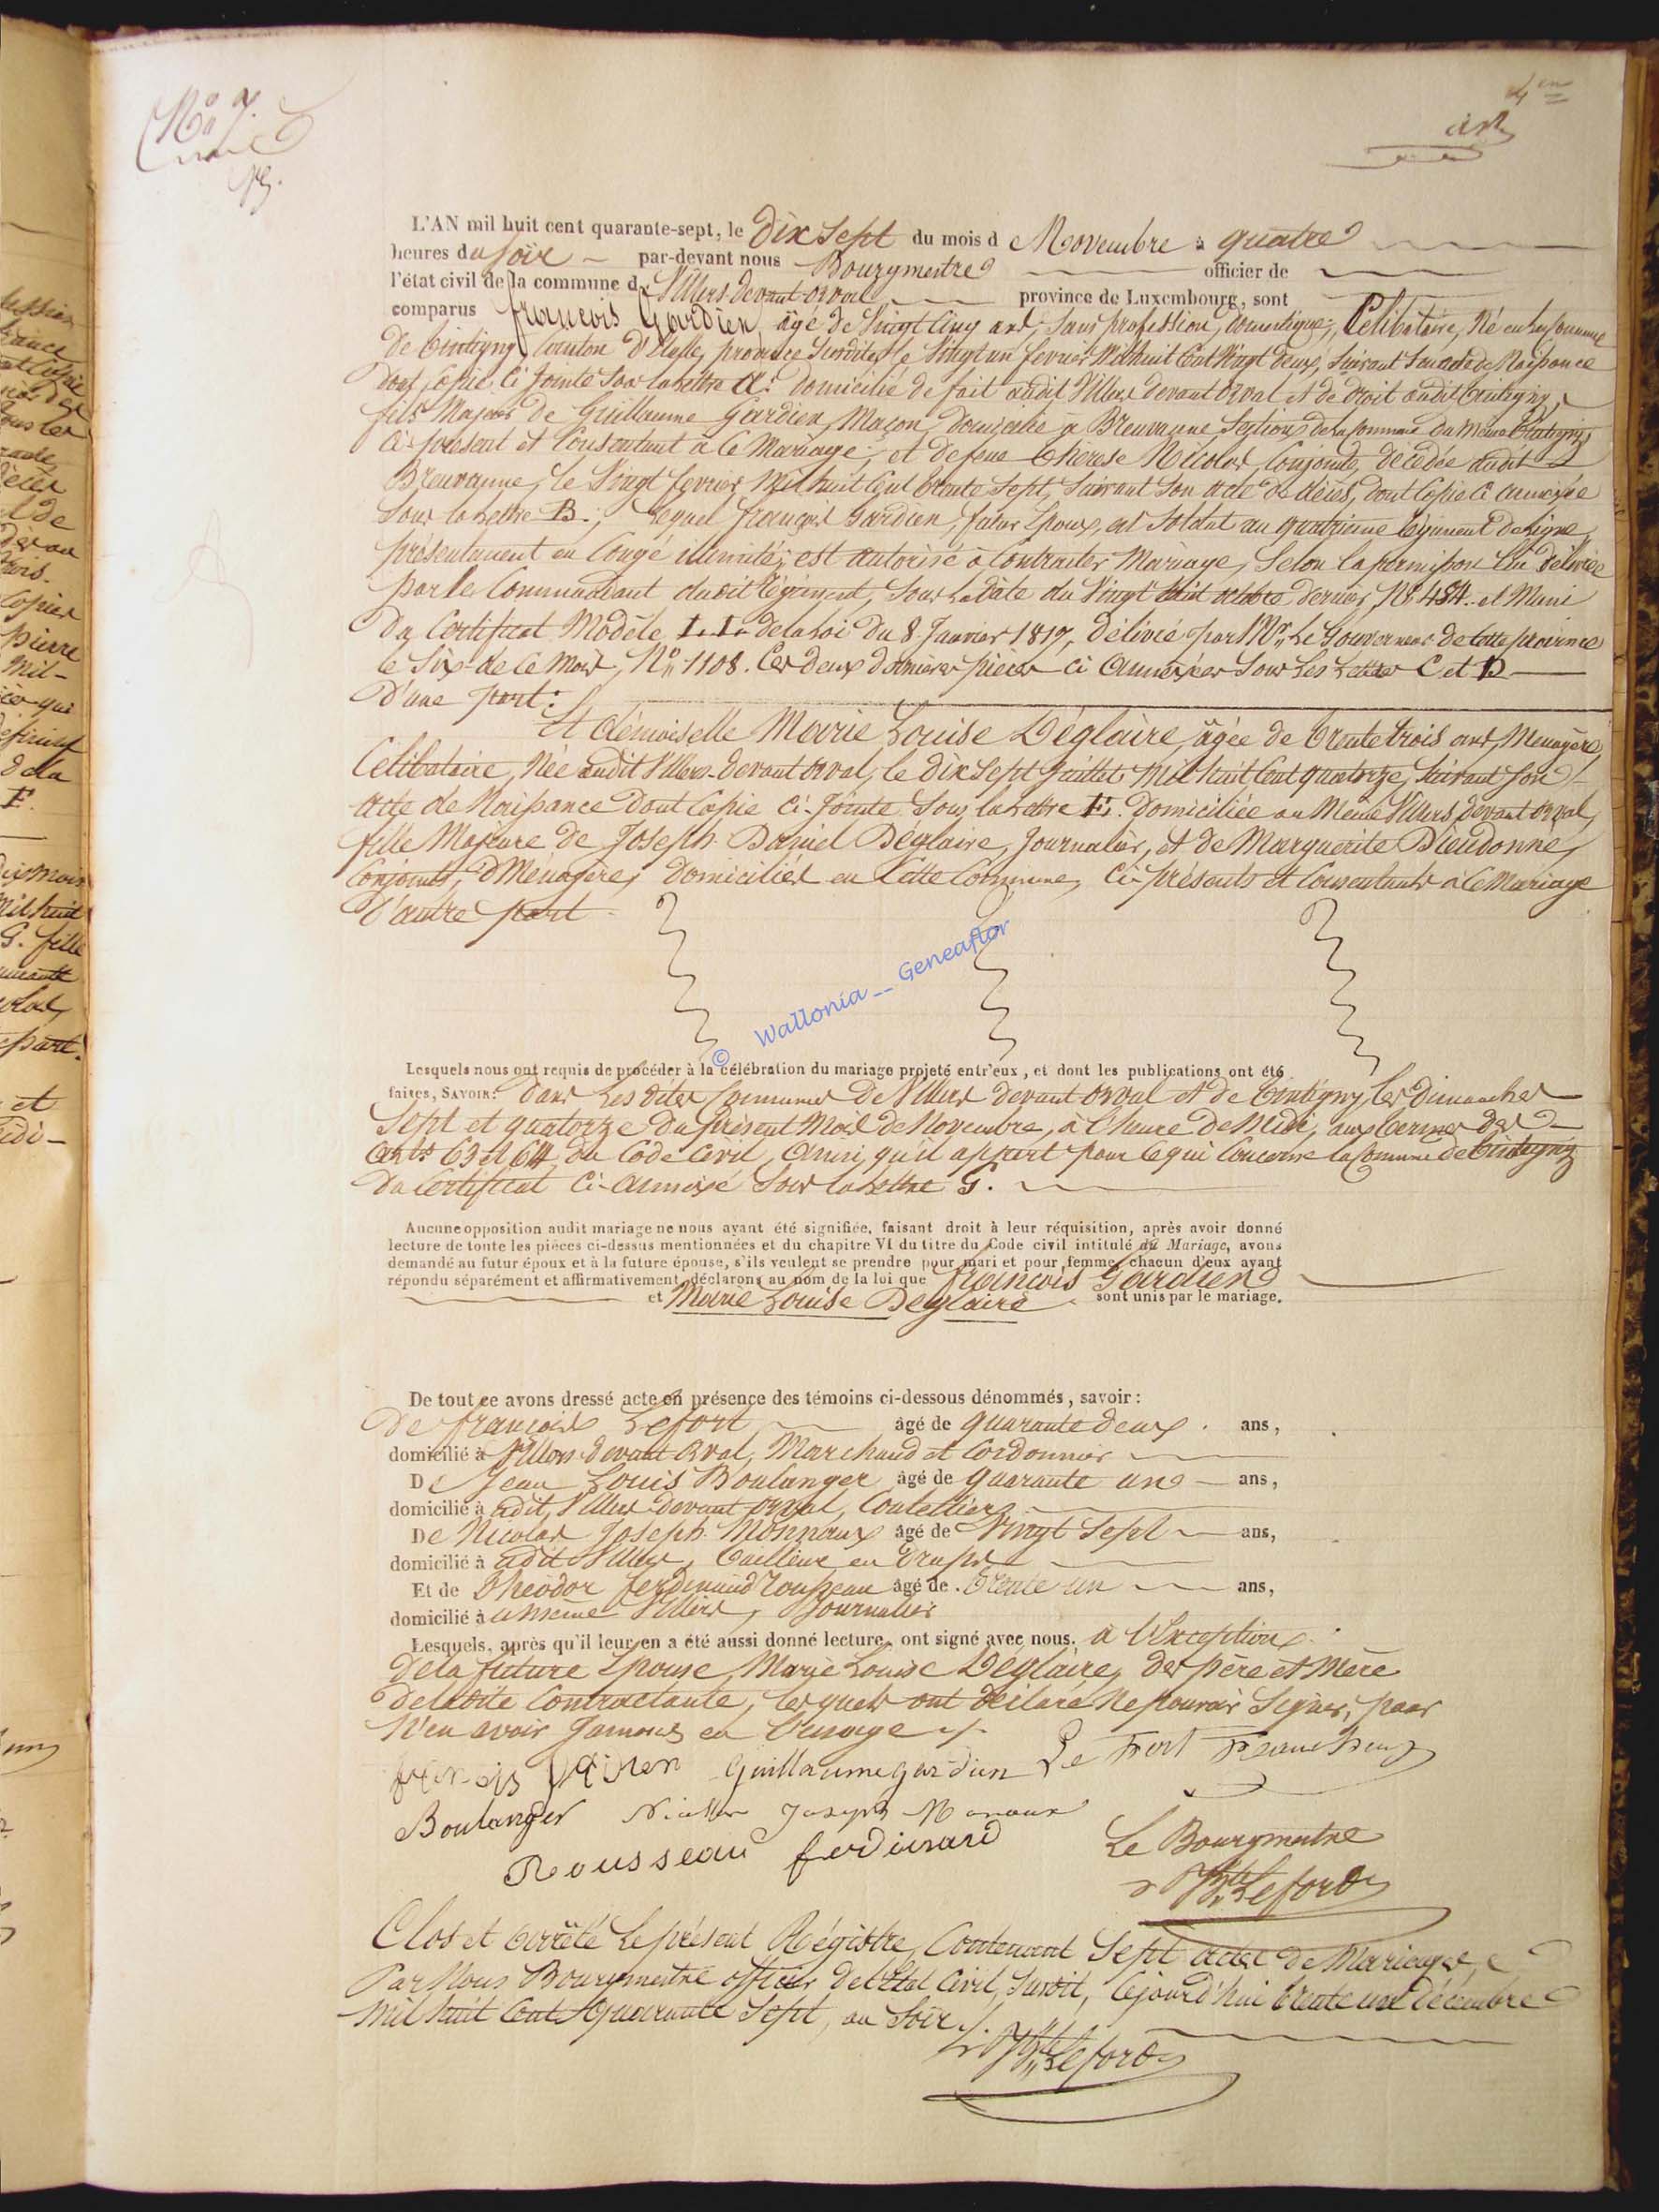 No 7.
4 en
L'AN mil huit cent quarante-sept, le Dix Sept du mois de Novembre à quatre
heures du soir par-devant nous Bourgmestre officier de
l'état civil de la commune de Villers-devant-orval province de Luxembourg, sont
comparus françois Gardien, âgé de Vingt Cinq ans, sans profession, domestique, Célibataire, Né en la Commune
de tintigny, Canton d'Etalle, province Susdite, le Vingt un fevrier Mil huit Cent Vingt deux, Suivant Son acte de Naissance
dont Copie Ci Jointe Sous la lettre A: Domicilié de fait audit Villers devant orval et de droit audit tintigny,
fils Majeur de Guillaume Gardien, Maçon, domicilié à Breuvanne Section de la Commune du Même tintigny,
Ci-présent et Consentant à Ce Mariage, et de feue thérese Nicolas, Conjoints, décédée audit
Breuvanne, le Vingt fevrier Mil huit Cent trente Sept, Suivant Son acte de décès, dont Copie Ci annexée
Sous la lettre B.; Lequel françois Gardien, futur Epoux, est Soldat au quatrieme Régiment de ligne,
présentement en Congé illimité; est autorisé à Contracter Mariage, Selon la permission lui délivrée
par le Commandant dudit Régiment, Sous la Date du Vingt huit octobre dernier, No 484. et Muni
Du Certificat Modèle L.L. de la loi du 8. Janvier 1817, Délivré par Mr. Le Gouverneur de Cette province
le Six de Ce Mois, No. 1108. Ces deux dernières pièces Ci Annexées Sous Les Lettres C et D
D'une part.
Et démoiselle Marie Louise Déglaire, âgée de trente trois ans, Menagère,
Célibataire, Née audit Villers-devant orval, le Dix Sept Juillet Mil huit Cent quatorze, Suivant Son
acte de Naissance Dont Copie Ci-Jointe Sous la lettre E. Domiciliée au Même Villers devant orval,
fille Majeure de Joseph Daniel Déglaire, Journalier, et de Marguerite Dieudonné,
Conjoints, Ménagère, domiciliés en Cette Commune, Ci-présents et Consentants à Ce Mariage
D'autre part
© Wallonia -- Geneaflor
Lesquels nous ont requis de procéder à la célébration du mariage projeté entr'eux, et dont les publications ont été
faites, SAVOIR: Dans Les dites Communes De Villers devant orval et de tintigny, les Dimanches
Sept et quatorze du présent Mois de Novembre, à l'heure De Midi, aux termes des
arts 63 et 64 du Code Civil, Ainsi qu'il appert pour Ce qui Concerne la Commune de tintigny
Du Certificat Ci-Annexé Sous la lettre G.
Aucune opposition audit mariage ne nous ayant été signifiée, faisant droit à leur réquisition, après avoir donné
lecture de toute les pièces ci-dessus mentionnées et du chapitre VI du titre du Code civil intitulé du Mariage, avons
demandé au futur époux et à la future épouse, s'ils veulent se prendre pour mari et pour femme, chacun d'eux ayant
répondu séparément et affirmativement, déclarons au nom de la loi que françois Gardien
et Marie Louise Déglaire sont unis par le mariage.
De tout ce avons dressé acte en présence des témoins ci-dessous dénommés, savoir:
De françois Lefort âgé de quarante deux ans,
domicilié à Villers-devant Orval, Marchand et Cordonnier
De Jean Louis Boulanger âgé de quarante un ans,
domicilié à udit, Villers devant orval, Coutellier
De Nicolas Joseph Monnaux âgé de Vingt Sept ans,
domicilié à udit Villers, tailleur en Draps
Et de Théodor ferdinand Rousseau âgé de trente un ans,
domicilié à u même Villers, Journalier
Lesquels, après qu'il leur en a été aussi donné lecture, ont signé avec nous, à L'Exception
De la future Epouse, Marie Louise Déglaire, des père et Mère
De la dite Contractante, lesquels ont déclaré Ne pouvoir Signer, pour
N'en avoir Jamais eu l'usage ./.
Guillaume gardien Le Fort
Boulanger Joseph Monaux
Rousseau ferdinand
Le Bourgmestre
Lefort
Clos et arrêté Le présent Régistre, Contenant Sept actes de Mariages,
Par Nous Bourgmestre officier de l'Etat Civil, Susdit, Cejourd'hui trente un Décembre
Mil huit Cent Quarante Sept, au Soir ./.
Lefort